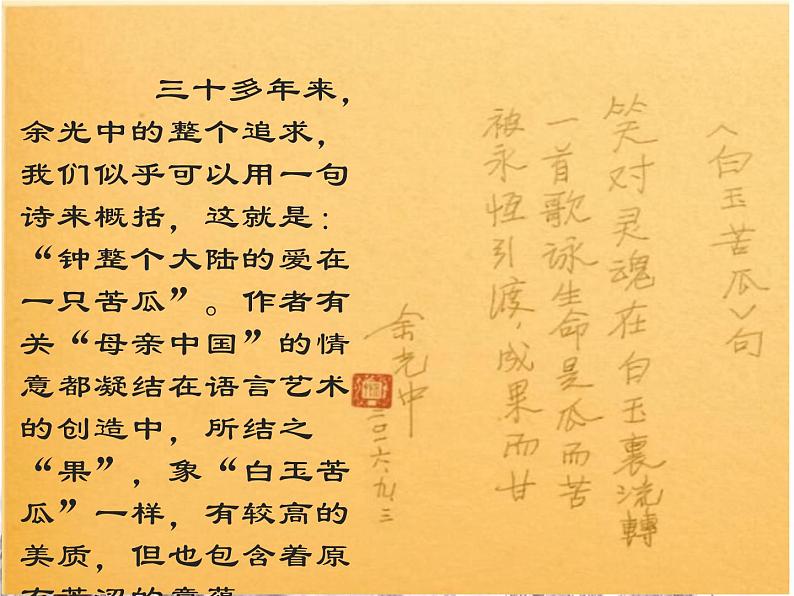 三十多年来，
余光中的整个追求，
我们似乎可以用一句
诗来概括，这就是：
“钟整个大陆的爱在
一只苦瓜”。作者有
关“母亲中国”的情
意都凝结在语言艺术
的创造中，所结之
“果”，象“白玉苦
瓜”一样，有较高的
美质，但也包含着原
有苦涩的意蕴
《白玉苦瓜》句
笑对灵魂在白玉裏流轉
一首歌詠生命是瓜而苦
被永恆引渡，成果而甘
余光中
二〇一六.九.三